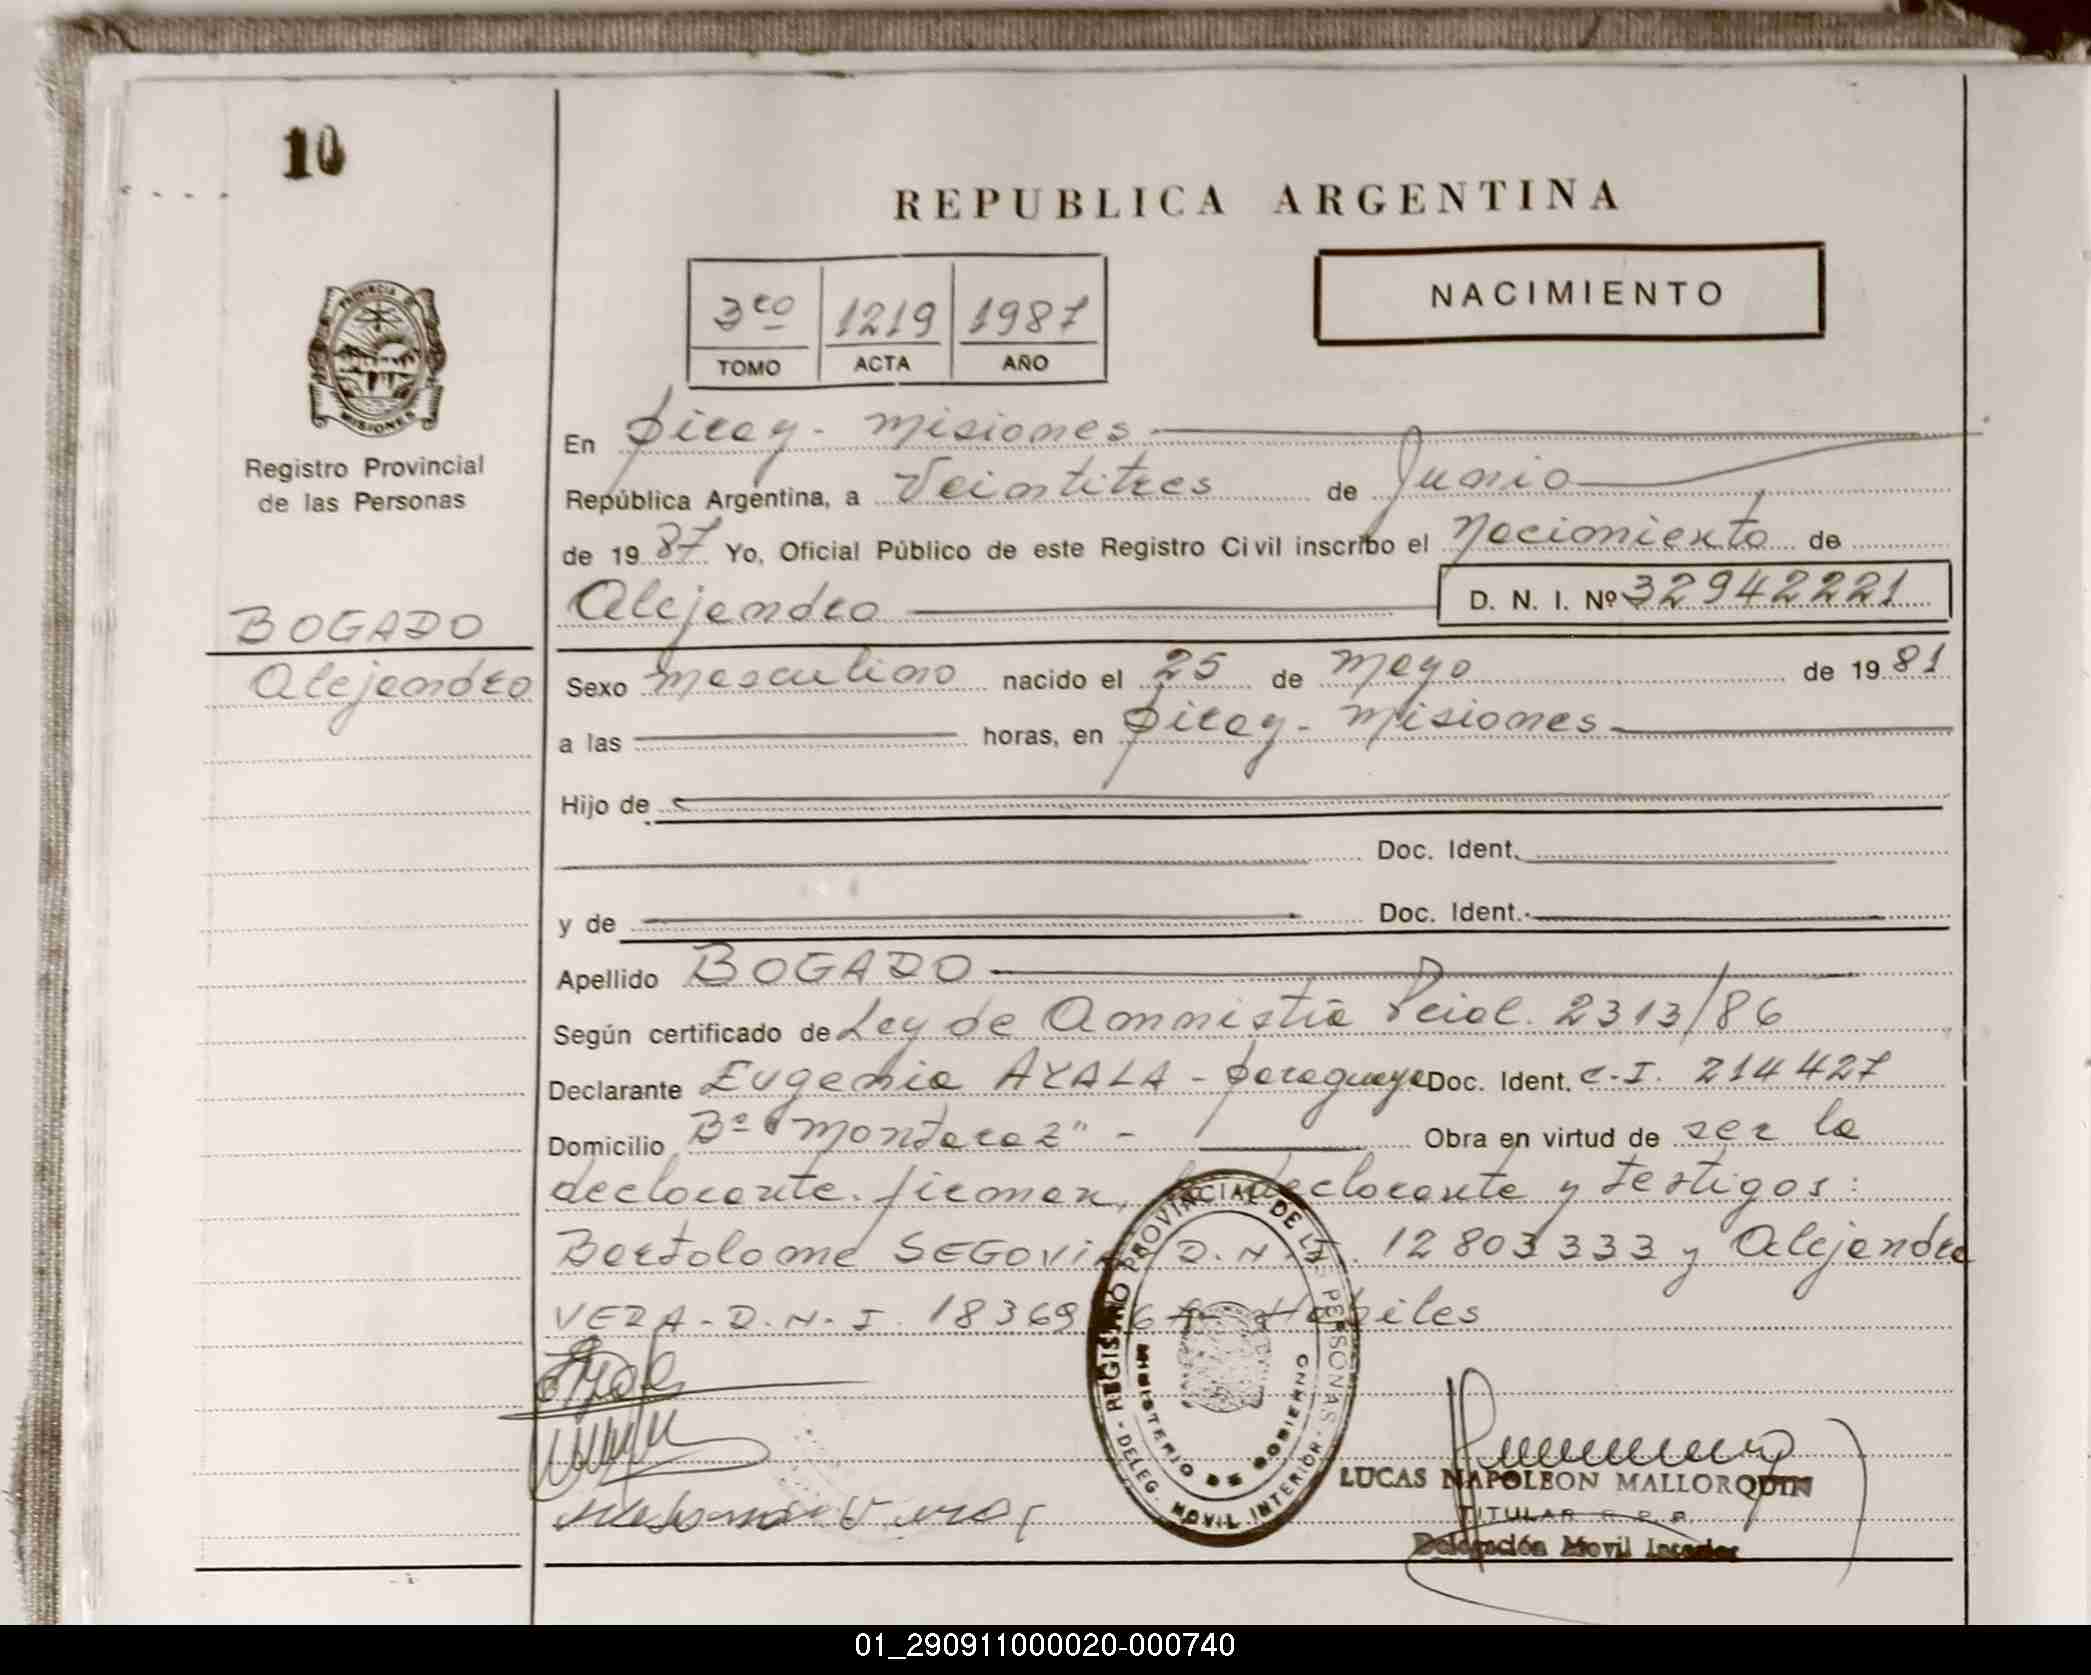 10
REPUBLICA ARGENTINA
NACIMIENTO
3ro 1219 1987
TOMO ACTA AÑO
PROVINCIA DE
MISIONES
Registro Provincial
de las Personas
BOGADO
Alejandro
En Piray - Misiones
República Argentina, a Veintitres de Junio
de 19 87 Yo, Oficial Público de este Registro Civil inscribo el Nacimiento de
Alejandro D. N. I. Nº 32942221
Sexo masculino nacido el 25 de Mayo de 19 81
a las horas, en Piray - Misiones
Hijo de
Doc. Ident.
y de Doc. Ident.
Apellido BOGADO
Según certificado de Ley de Amnistia Pcial. 2313/86
Declarante Eugenia AYALA - paraguaya Doc. Ident. C.I. 214427
Domicilio Bº "Montaraz" - Obra en virtud de ser la
declarante. firman, la declarante y testigos:
Bartolome SEGOVIA D.N.I. 12803333 y Alejandro
VERA - D.N.I. 18369 Habiles
REGISTRO PROVINCIAL DE LAS PERSONAS
MINISTERIO DE GOBIERNO
- DELEG. MOVIL INTERIOR -
LUCAS NAPOLEON MALLORQUIN
TITULAR
Delegación Movil Interior
01_290911000020-000740